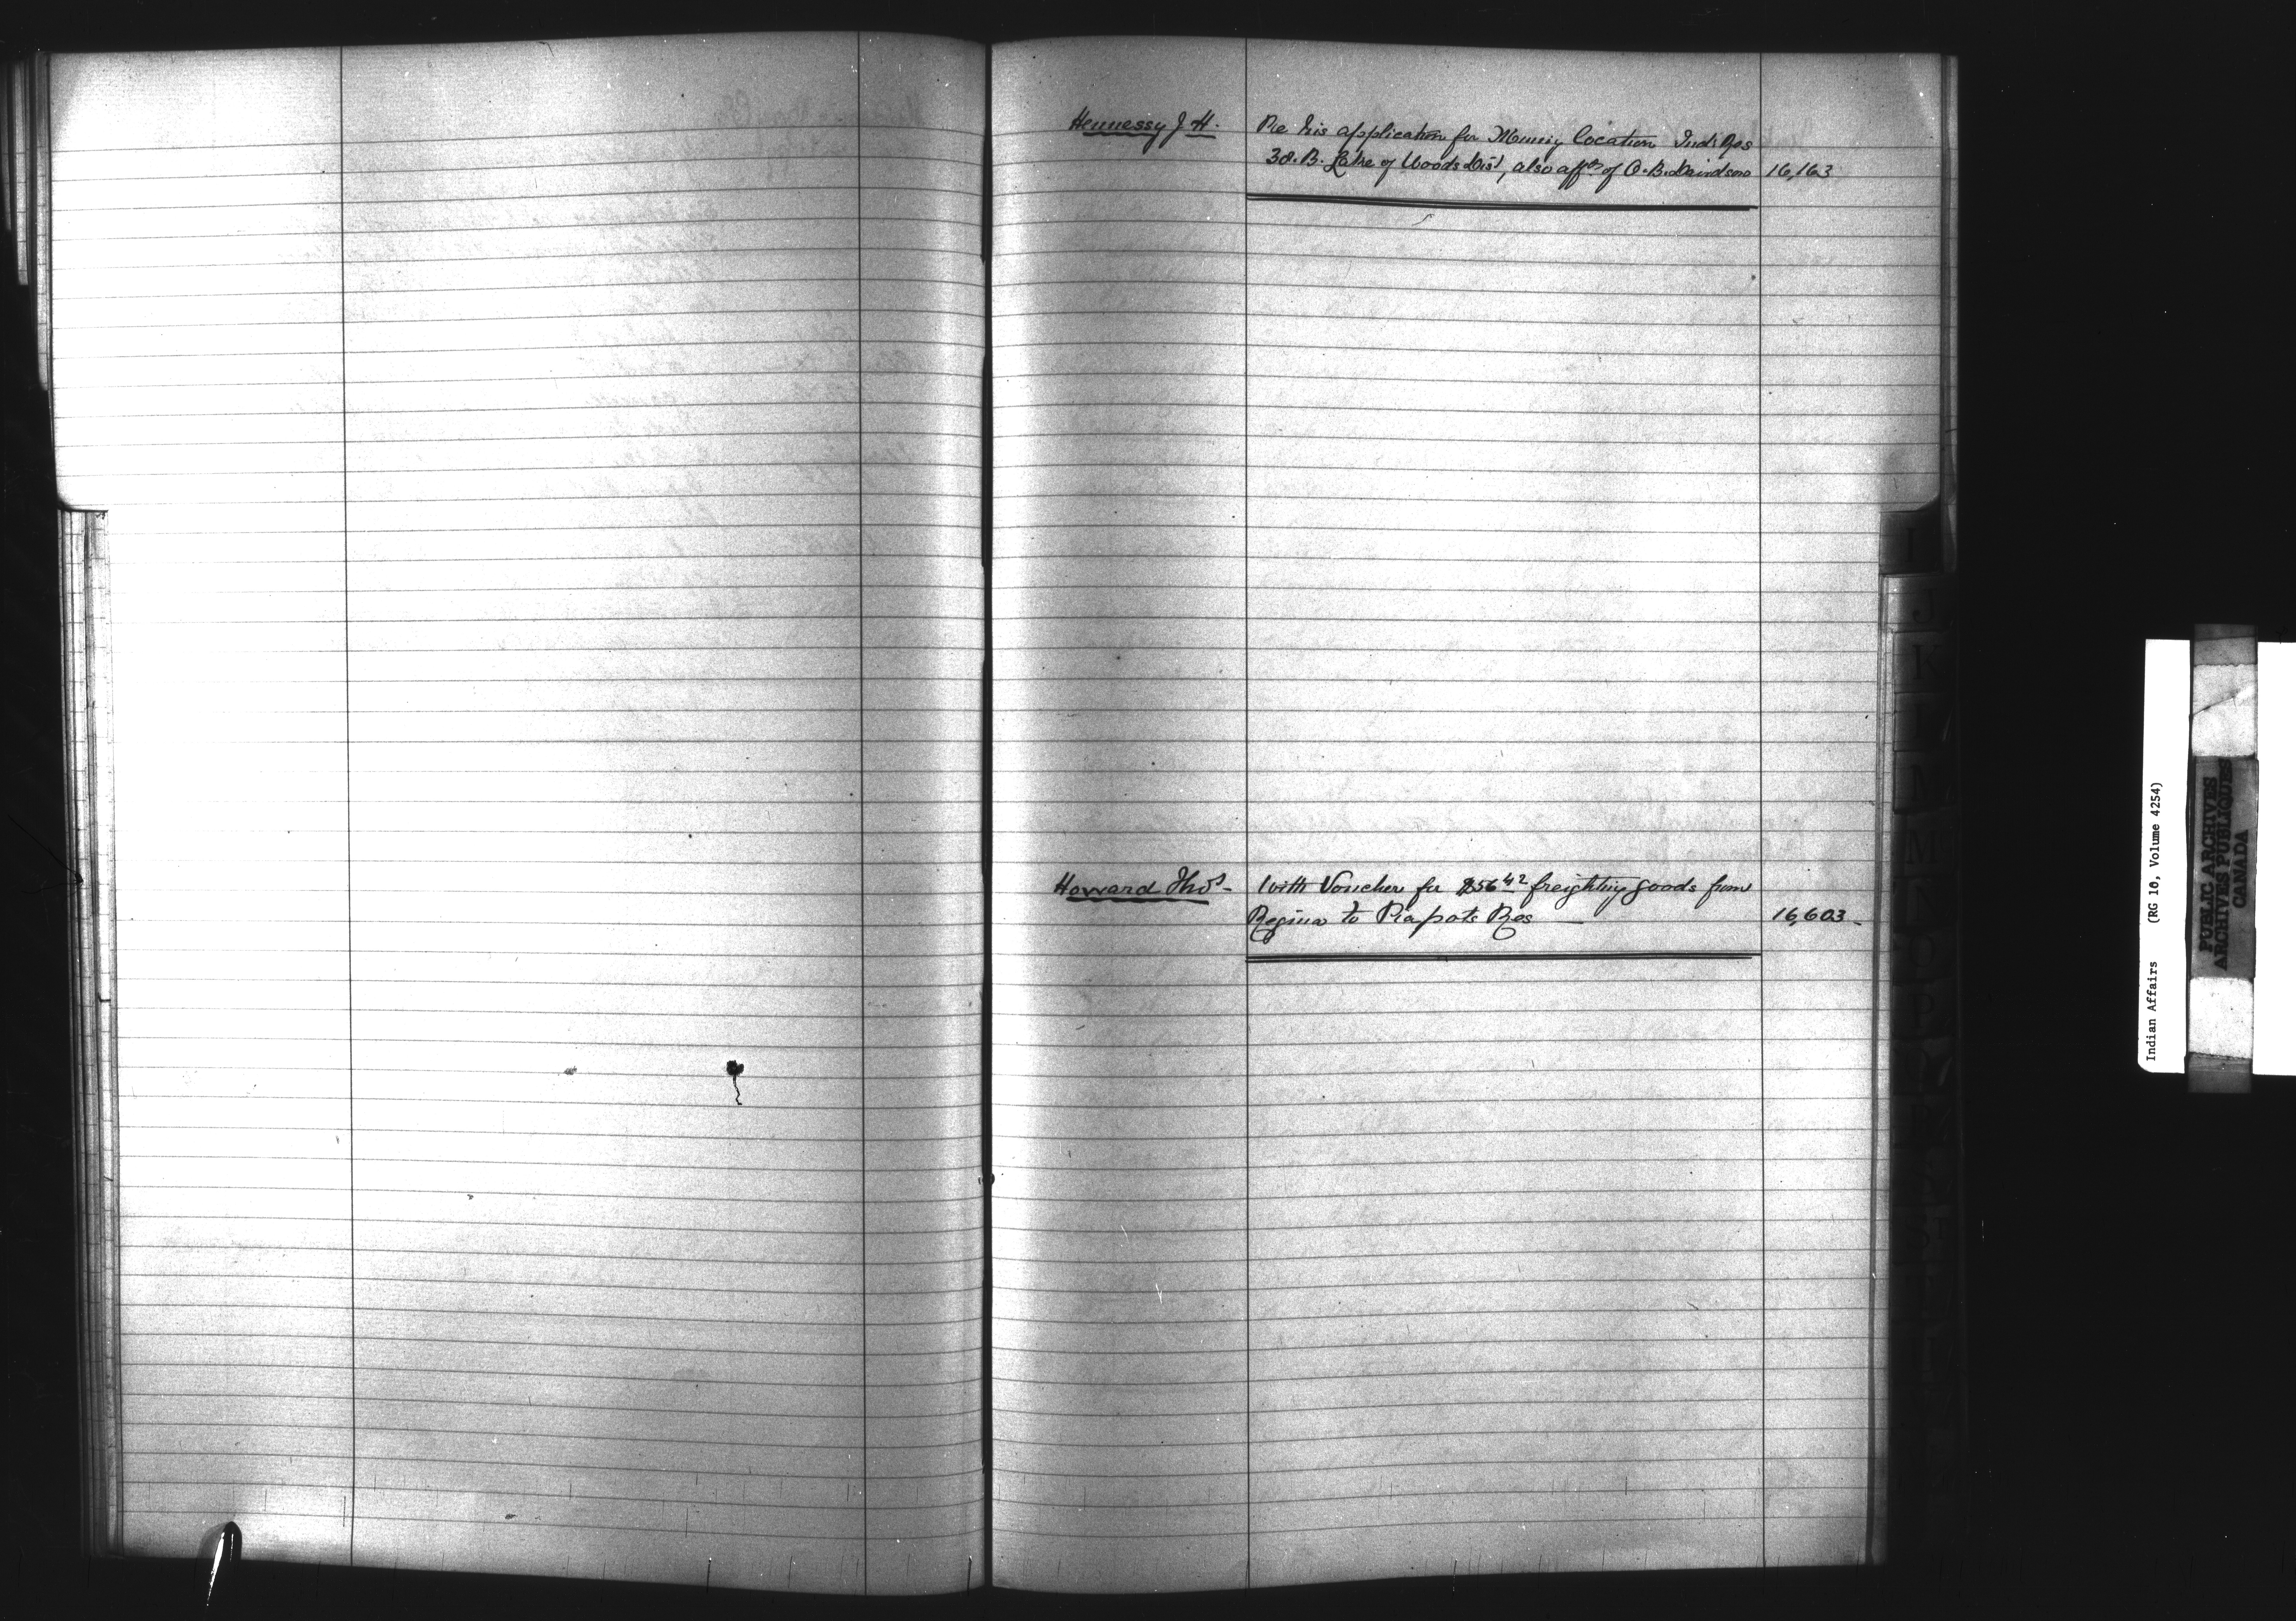 Hennessy J. H. Re his application for Mining Location Ind. Res
38. B. Lake of Woods Dist, also affn of O. B. Davidson 16,163
Howard Thos - With Voucher for $56 42 freighting goods from
Regina to Piapots Res 16,603 -
I
J
K
L
M
Indian Affairs (RG 10, Volume 4254)
PUBLIC ARCHIVES
ARCHIVES PUBLIQUES
CANADA